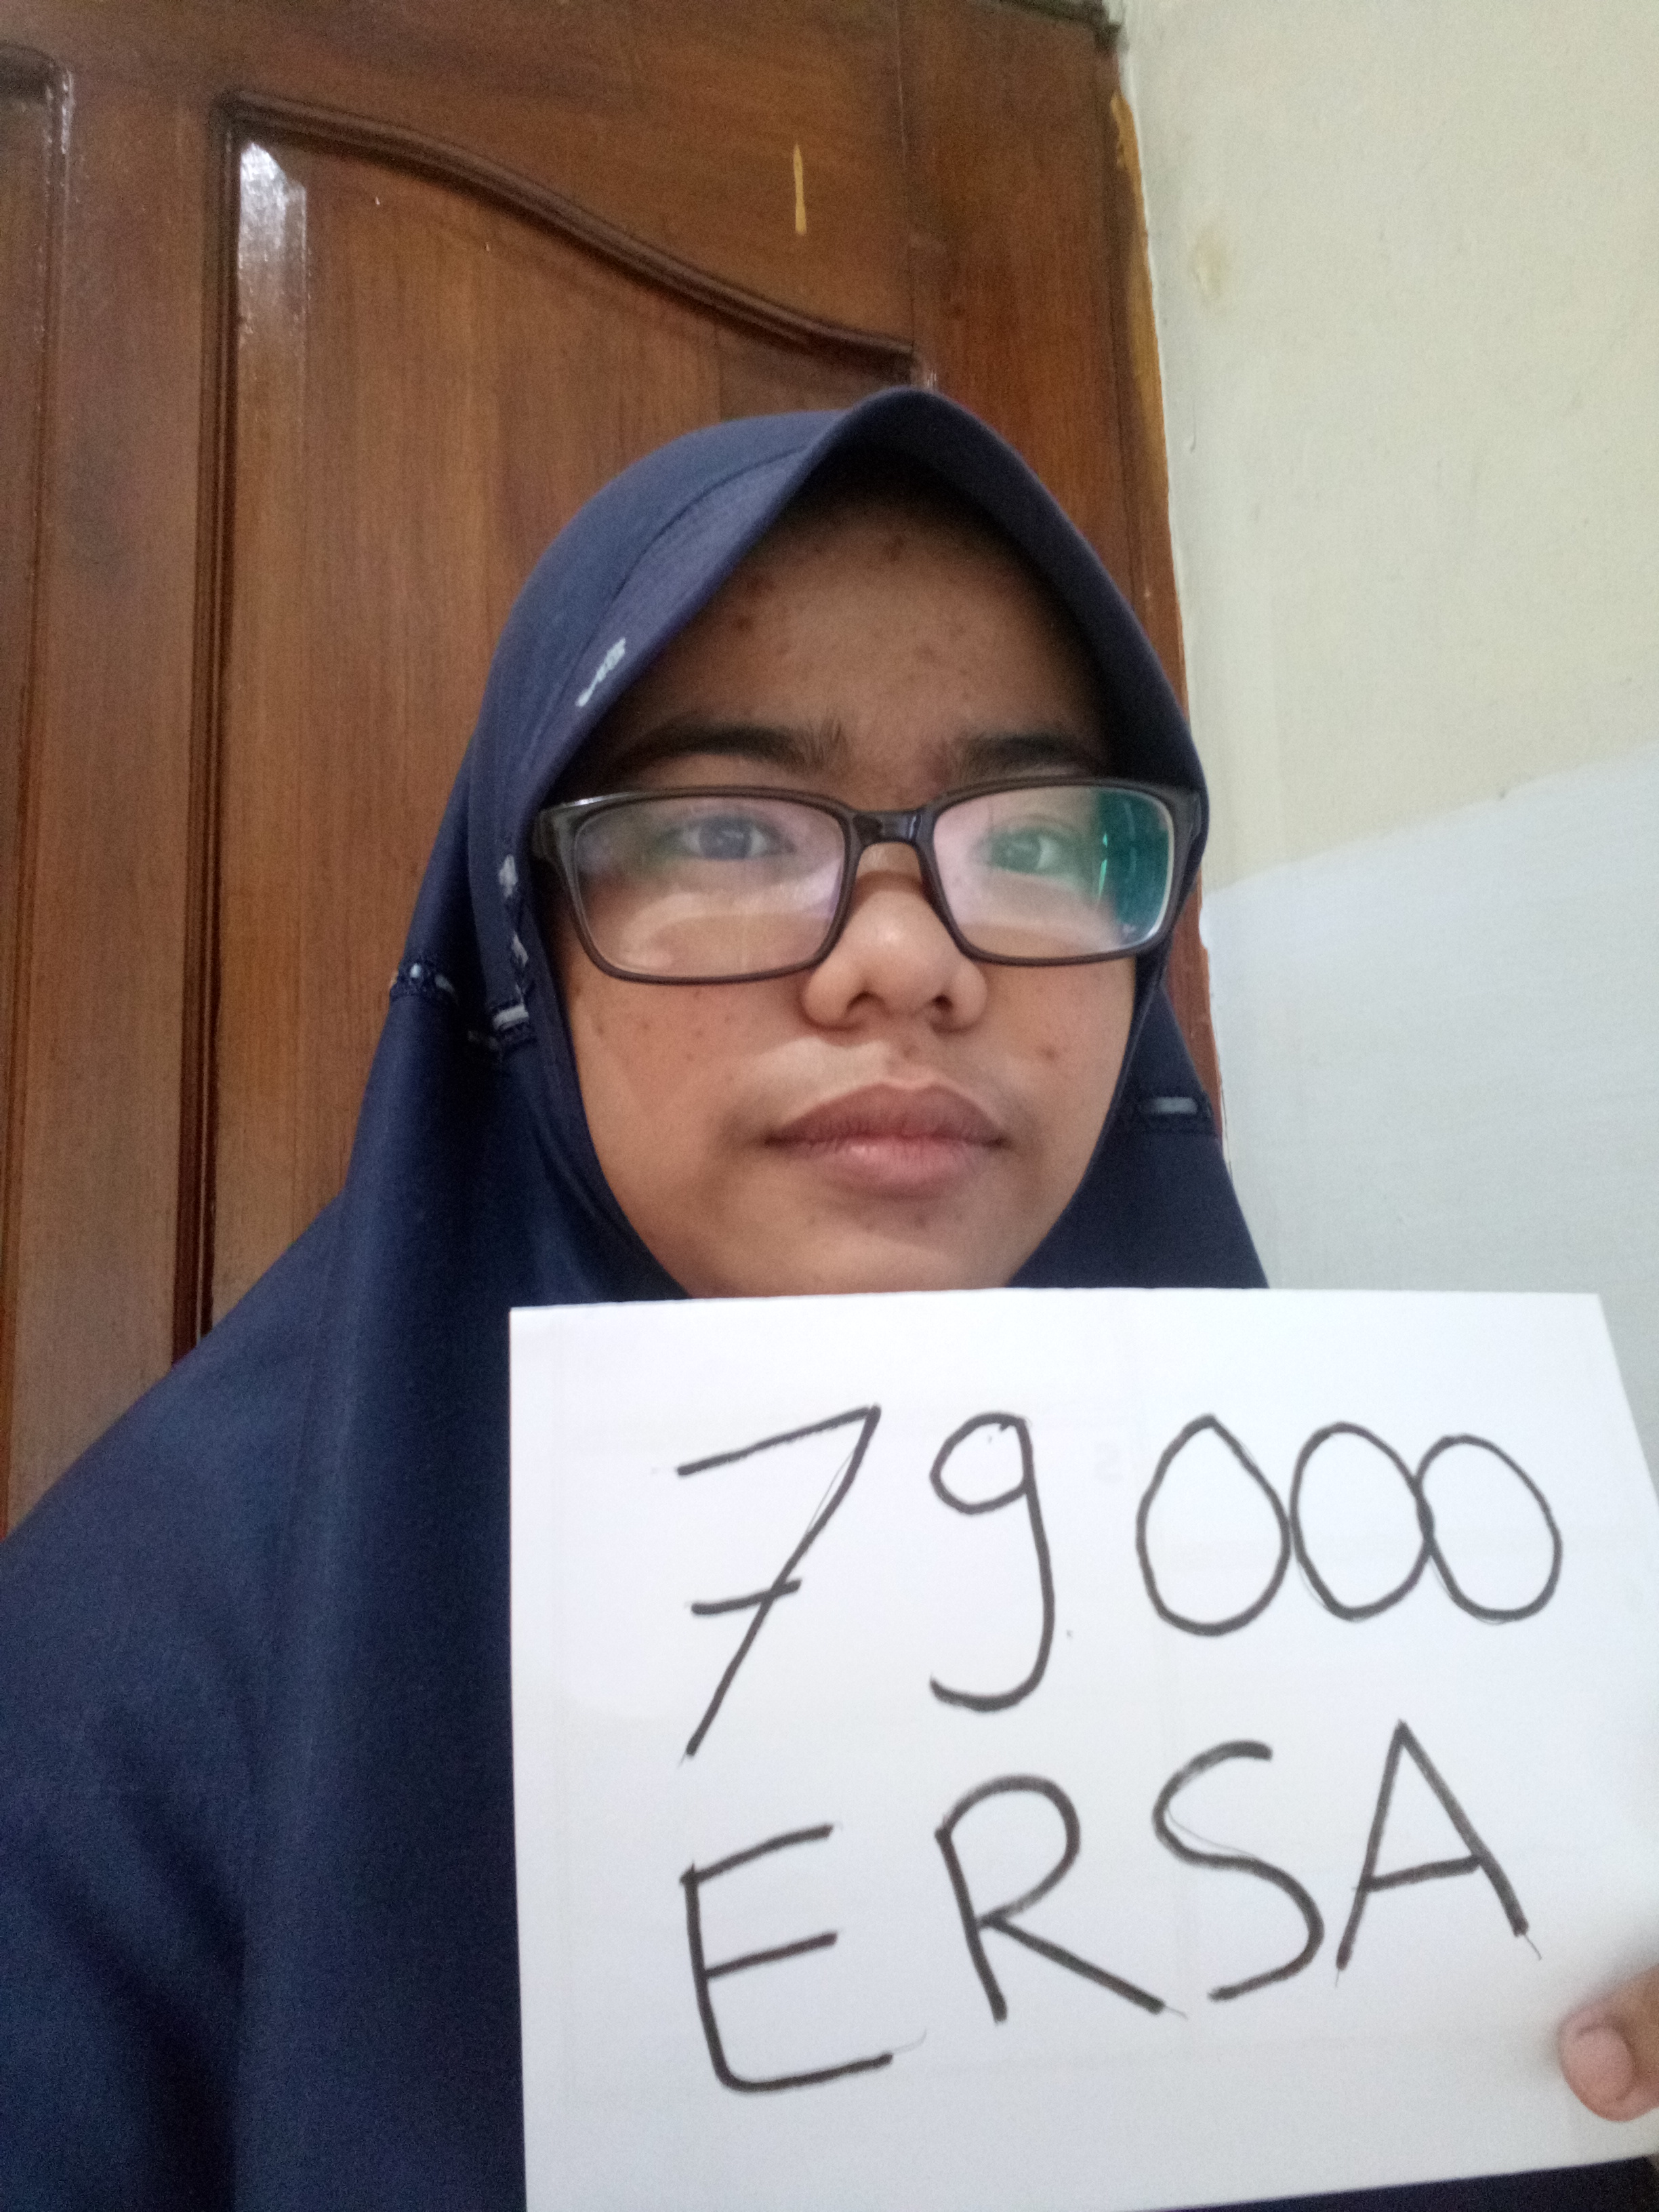 79.000
ERSA